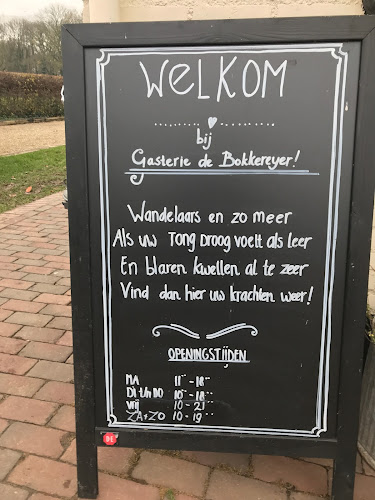 WELKOM
bij
Gasterie de Bokkereyer!
Wandelaars en zo meer
Als uw TONG DROOG voelt als leer
En blaren kwellen al te zeer
Vind dan hier uw krachten weer!
OPENINGSTIJDEN
MA 11⁰⁰ - 18⁰⁰
DI t/m DO 10⁰⁰ - 18⁰⁰
VRIJ 10 - 21⁰⁰
ZA + ZO 10 - 19⁰⁰